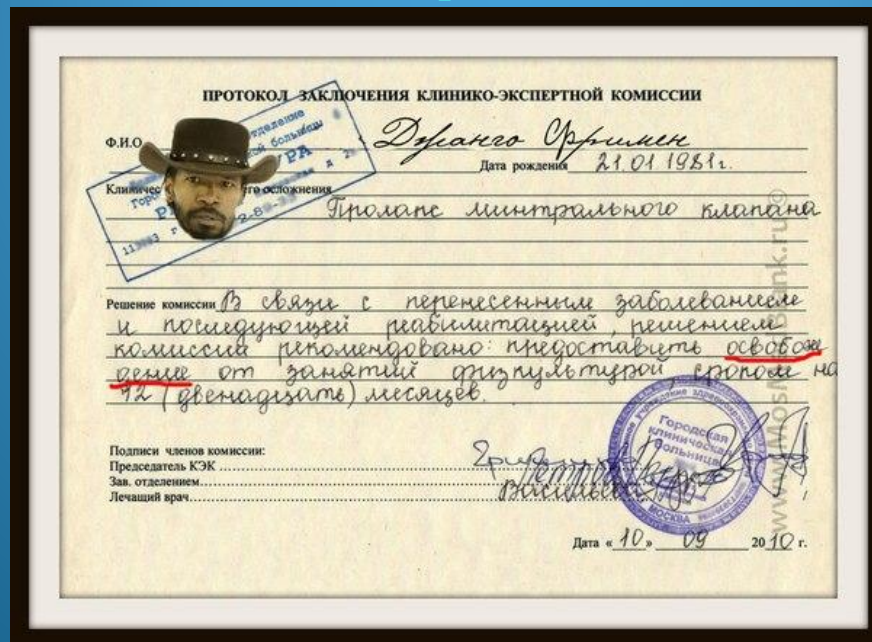 ПРОТОКОЛ ЗАКЛЮЧЕНИЯ КЛИНИКО-ЭКСПЕРТНОЙ КОМИССИИ
Ф.И.О Джанго Фримен
Дата рождения 21.01.1981г.
осложнения
Пролапс минтрального клапана
Решение комиссии В связи с перенесенным заболеванием
и последующей реабилитацией, решением
комиссии рекомендовано: предоставить освобож
дение от занятий физкультурой, сроком на
12 (двенадцать) месяцев.
Подписи членов комиссии:
Председатель КЭК
Зав. отделением
Лечащий врач
Городская
клиническая
больница
МОСКВА
Дата « 10 » 09 2010 г.